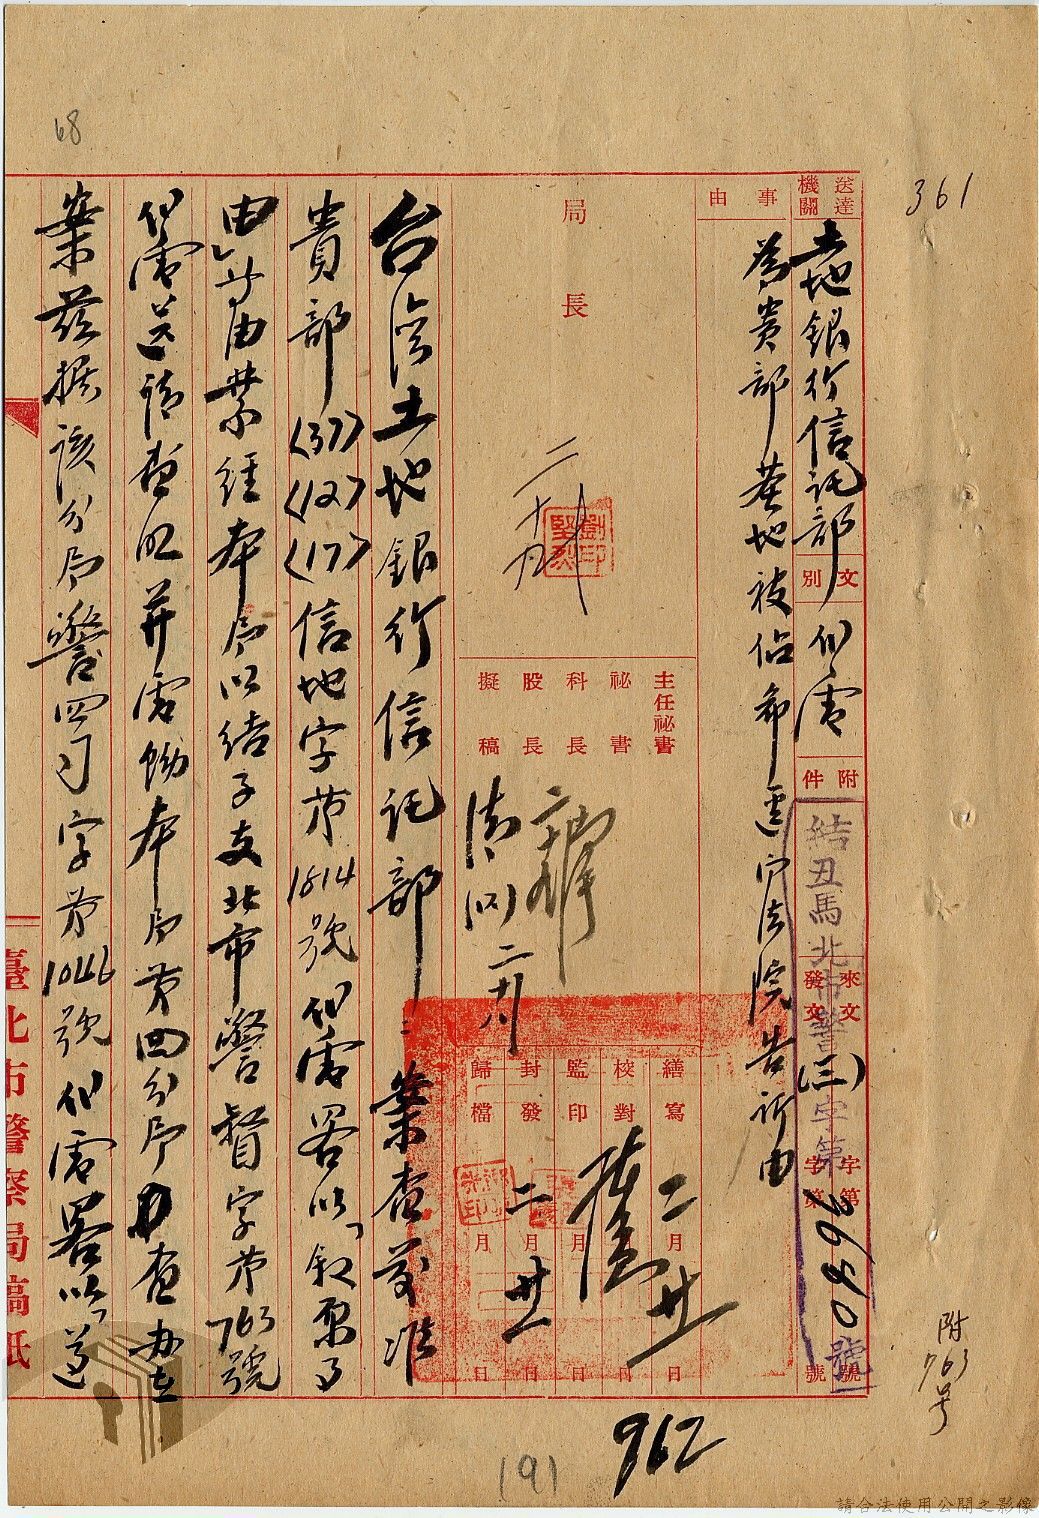 68
361
送達機關
土地銀行信託部
文別
代電
附件
來文 字第 號
發文 字第 號
結丑馬北市警(三)字第0496號
附763号
事由
為貴部基地被佔希逕向法院告訴由
局長
二十
鄧堅烈印
主任祕書
祕書
科長
股長
擬稿
繕寫 二月廿一日
校對 月 日
監印 月 日
封發 二月廿一日
歸檔 月 日
台湾土地銀行信託部
案查前准
貴部(37)(12)(17)信地字第1814號代電畧以「
由」等由業經本局以結子支北市警督字第763號
代電送請查照并電飭本局第四分局查办在
案茲据該分局警四司字第1046號代電畧以「遵
臺北市警察局稿紙
962
191
請合法使用公開之影像